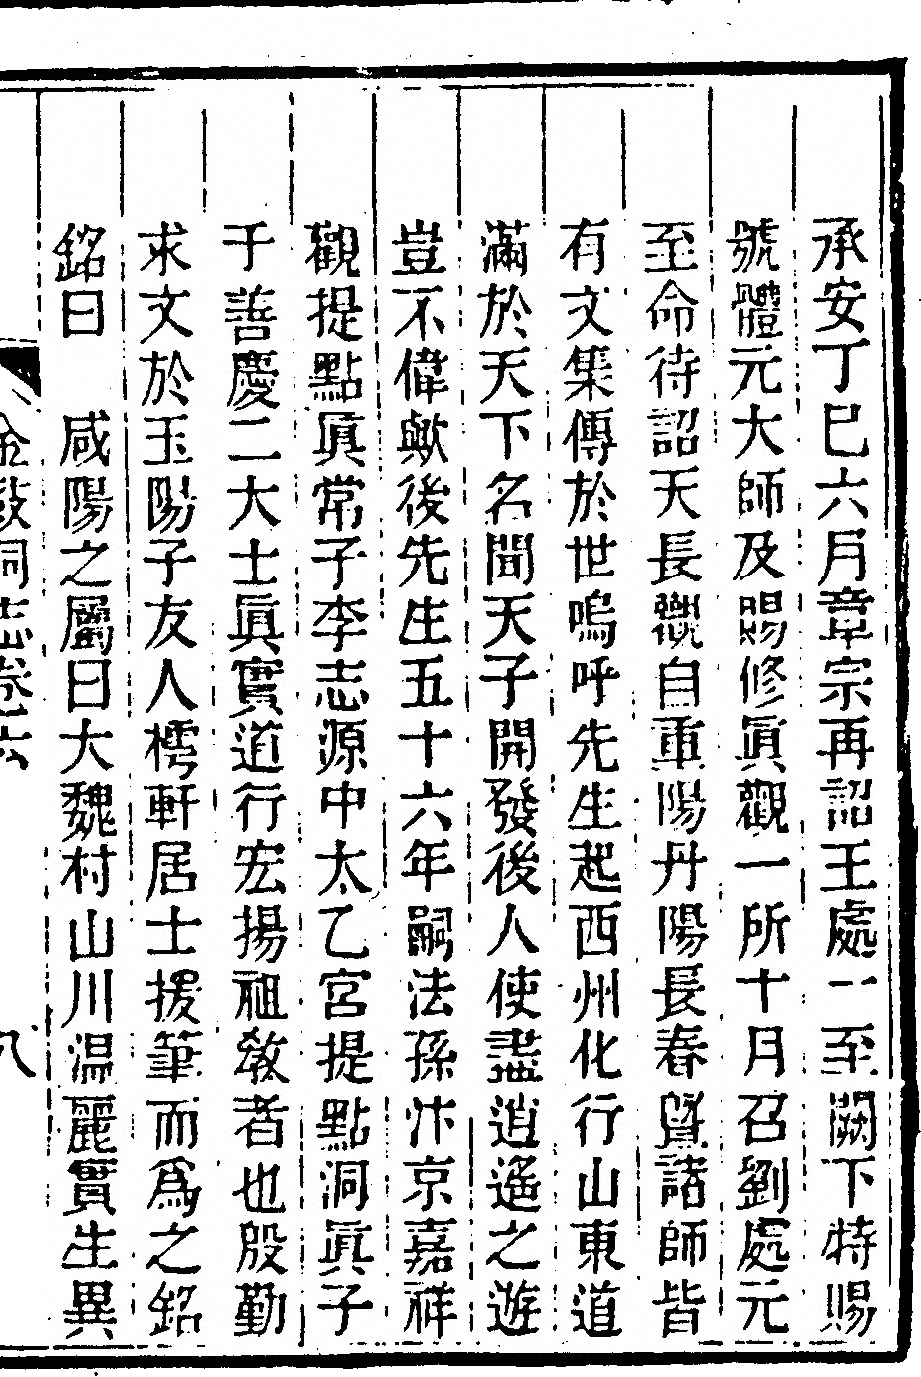 承安丁巳六月章宗再詔王處一至闕下特賜
號體元大師及賜修眞觀一所十月召劉處元
至命待詔天長觀自重陽丹陽長春暨諸師皆
有文集傳於世嗚呼先生起西州化行山東道
滿於天下名聞天子開發後人使盡逍遙之遊
豈不偉歟後先生五十六年嗣法孫汴京嘉祥
觀提點眞常子李志源中太乙宮提點洞眞子
于善慶二大士眞實道行宏揚祖敎者也殷勤
求文於玉陽子友人樗軒居士援筆而爲之銘
銘曰　咸陽之屬曰大魏村山川温麗實生異
金蓋洞志卷六　八